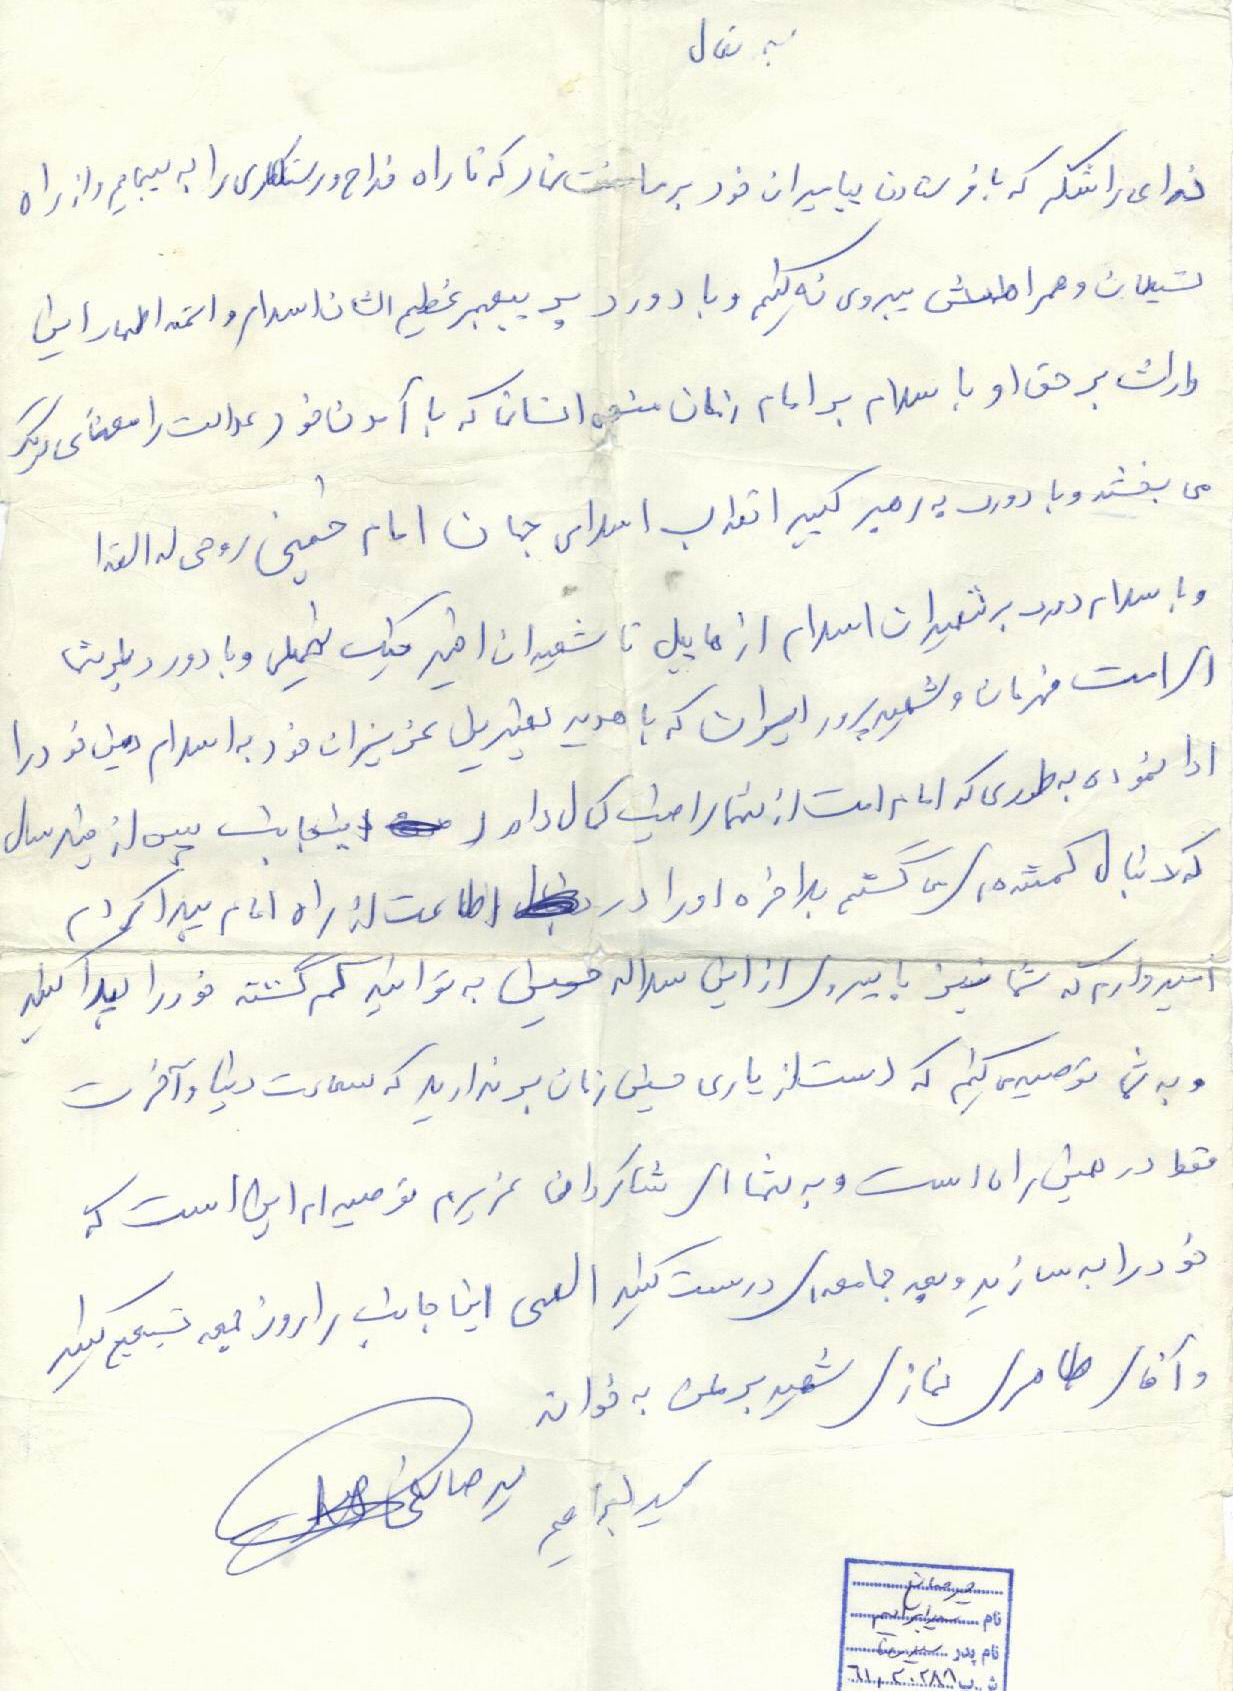 به تعالی
خدای را شکر که با فرستادن پیامبران خود بر ما منت نهاد که تا راه فلاح و رستگاری را به پیماییم و از راه
شیطان و همراهانش پیروی نه کنیم و با درود بر پیغمبر عظیم الشان اسلام و ائمه اطهار این
وارث بر حق او با سلام بر امام زمان منجی انسانها که با آمدن خود عدالت را معنای دیگر
می بخشد و با درود به رهبر کبیر انقلاب اسلامی جهان امام خمینی روحی له الفدا
و با سلام درود بر شهیدان اسلام از هابیل تا شهیدان اخیر جنگ تحمیلی و با درود بر شما
ای امت قهرمان و شهیدپرور ایران که با هدیه عزیزان خود به اسلام دین خود را
ادا نموده به طوری که امام امت از شما رضایت کامل دارد اینجانب پس از چند سال
که دنبال گمشده ای می گشتم بلاخره او را در اطاعت از راه امام پیدا کردم
امیدوارم که شما نیز با پیروی از این سلاله حسین به توانید گم گشته خود را پیدا کنید
و به شما توصیه می کنم که دست از یاری حسین زمان بر ندارید که سعادت دنیا و آخرت
فقط در همین راه است و به شما ای شاگردان عزیزم توصیه ام این است که
خود را به سازید و بعد جامعه ای درست کنید الهی اینجانب را روز جمعه تشییع کنید
و آقای طاهری نماز شهید بر من به خواند
سید ابراهیم میر صانعی
میرصانع
نام سید ابراهیم
نام پدر سید رضا